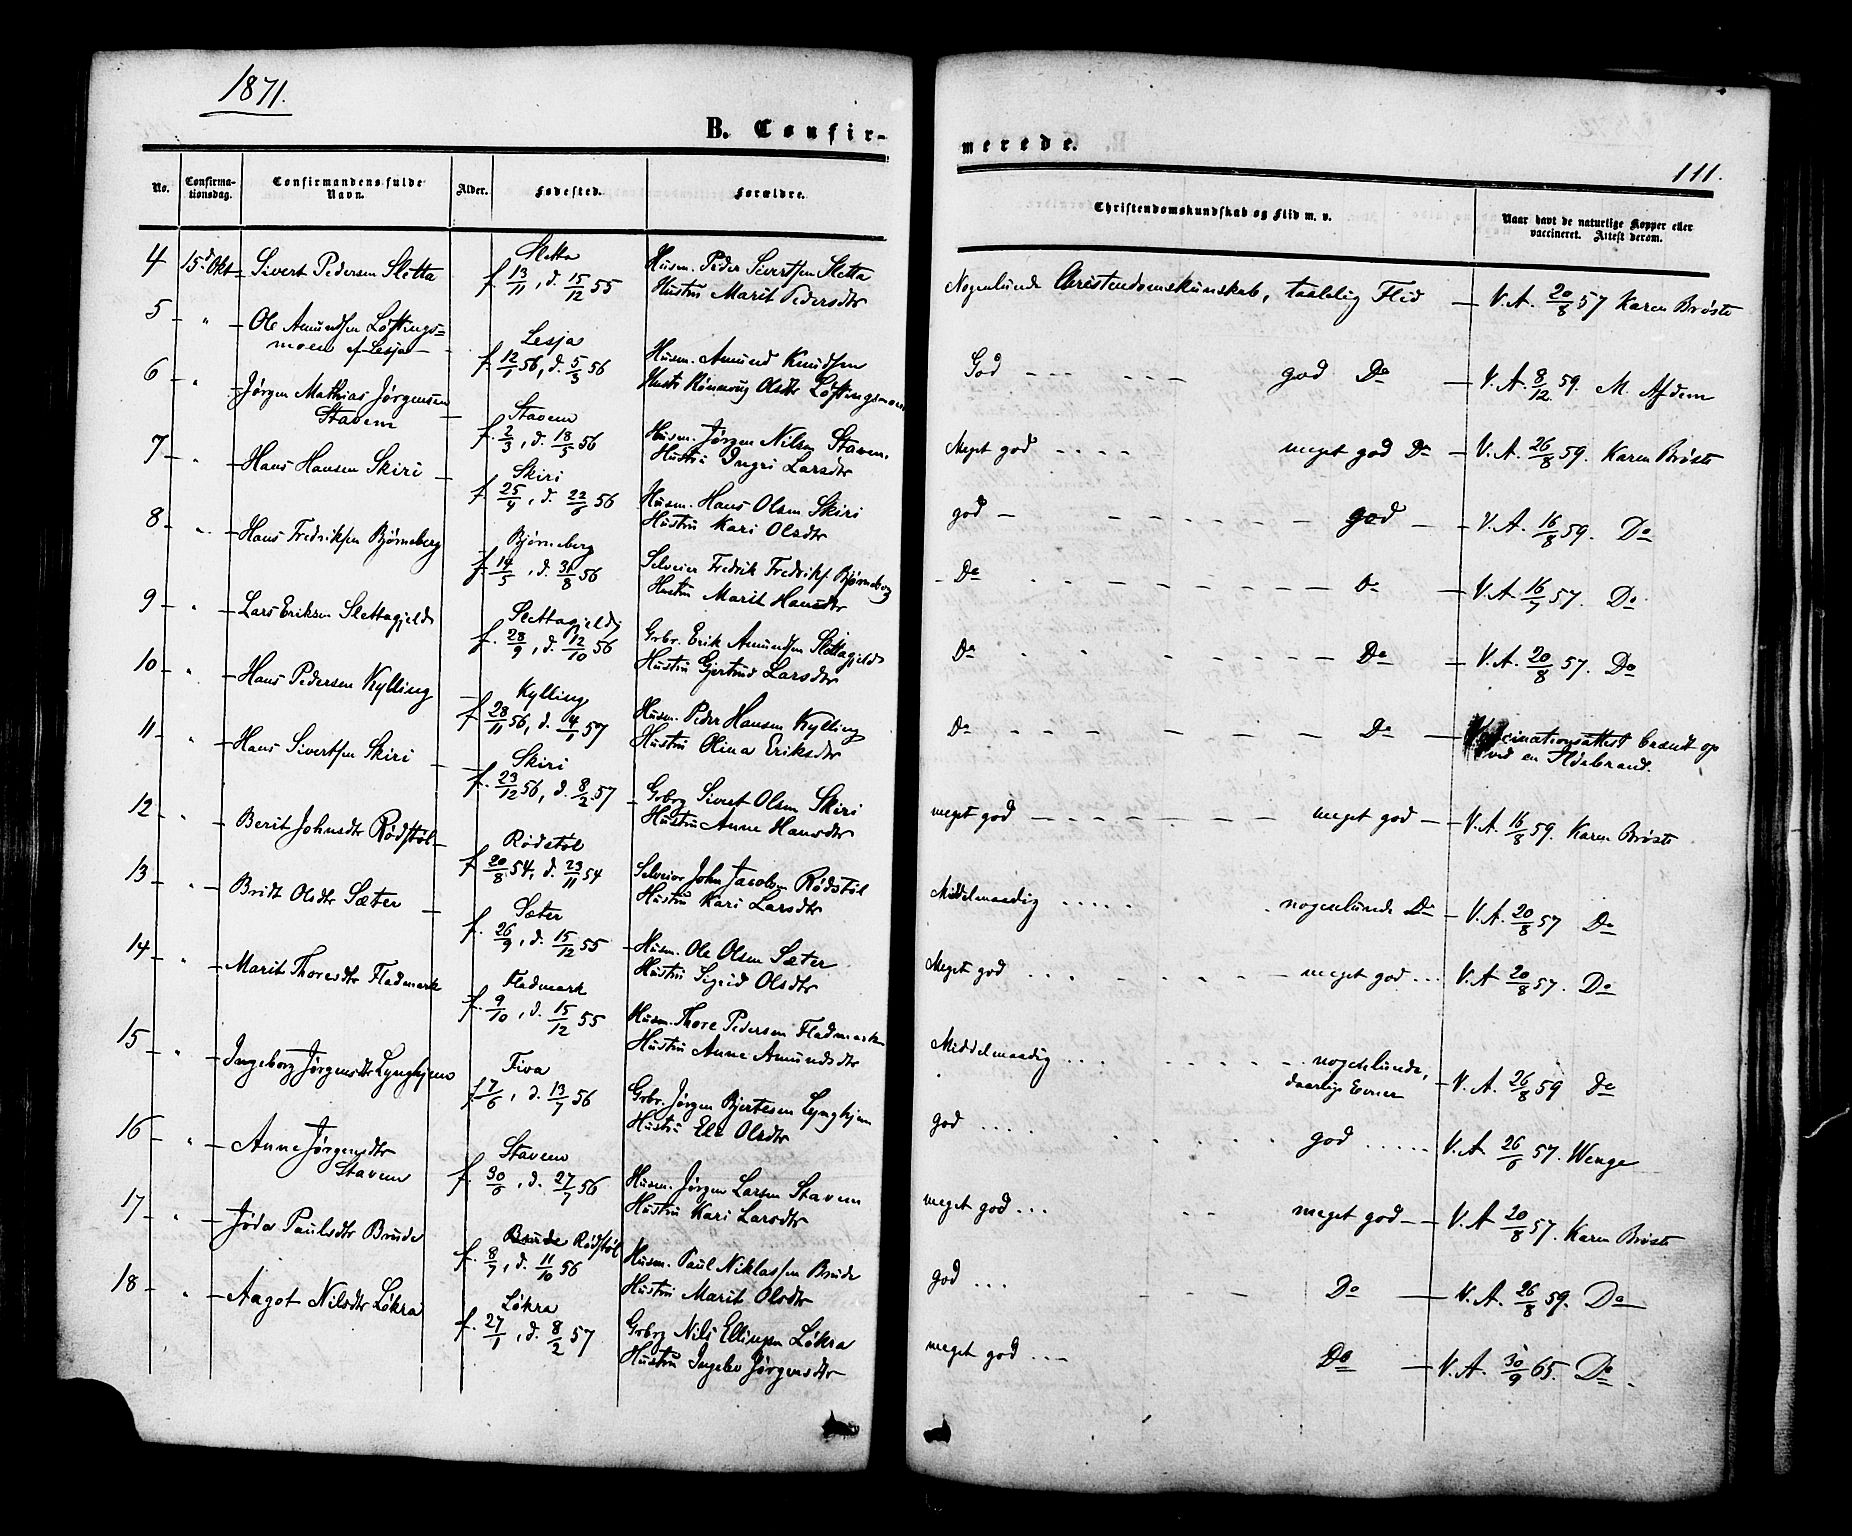 1871.
B. Confir-
No.
Confirma-
tionsdag.
Confirmandens fulde
Navn.
Alder.
Fødested.
Forældre.
4 15d Okt Sivert Pedersen Sletta
Sletta
f. 13/11, d. 15/12 55
Husm. Peder Sivertsen Sletta
Hustru Marit Pedersdtr
5 " Ole Amundsen Løftings=
moen af Lesja
Lesja
f. 12/1 56, d. 5/3 56
Husm. Amund Knudsen
Hustr Rønnoug Olsdtr Løftingsmoen
6 " Jørgen Mathias Jørgensen
Stavem
Stavem
f. 2/3, d. 18/5 56
Husm. Jørgen Nilsen Stavem.
Hustru Ingri Larsdtr
7 " Hans Hansen Skiri
Skiri
f. 25/4, d. 22/6 56
Husm. Hans Olsen Skiri
Hustru Kari Olsdtr
8 " Hans Fredriksen Bjørneberg
Bjørneberg
f. 14/5, d. 31/8 56
Selveier Fredrik Fredriks. Bjørneberg
Hustru Marit Hansdtr
9 " Lars Eriksen Slettagjeld
Slettagjeld
f. 28/9, d. 12/10 56
Grbr. Erik Amundsen Slettagjeld
Hustru Gjertrud Larsdtr
10 " Hans Pedersen Kylling
Kylling
f. 28/11 56, d. 4/1 57
Husm. Peder Hansen Kylling
Hustru Olina Eriksdtr
11 " Hans Sivertsen Skiri
Skiri
f. 23/12 56, d. 8/2 57
Grbrg Sivert Olsen Skiri
Hustru Anne Hansdtr
12 " Berit Johnsdtr Rødstøl
Rødstøl
f. 20/8 54, d. 23/11 54
Selveier John Jacobsen Rødstøl
Hustru Kari Larsdtr
13 " Britt Olsdtr Sæter
Sæter
f. 26/9, d. 15/12 55
Husm. Ole Olsen Sæter
Hustru Sigrid Olsdtr
14 " Marit Thoresdtr Fladmark
Fladmark
f. 9/10, d. 15/12 55
Husm. Thore Pedersen Fladmark
Hustru Anne Amundsdtr
15 " Ingeborg Jørgensdtr Lynghjem
Fiva
f. 7/6, d. 13/7 56
Grbr. Jørgen Bjertesen Lynghjem
Hustru Eli Olsdtr
16 " Anne Jørgensdtr
Stavem
Stavem
f. 30/6, d. 27/7 56
Husm. Jørgen Larsen Stavem
Hustru Kari Larsdtr
17 " Jøda Paulsdtr Brude
Brude Rødstøl
f. 8/7, d. 11/10 56
Husm. Paul Niklassen Brude
Hustru Marit Olsdtr
18 " Aagot Nilsdtr Løkra
Løkra
f. 27/1, d. 8/2 57
Grbrg Nils Ellingsen Løkra
Hustru Ingebor Jørgensdtr
merede.
111.
Christendomskundskab og Flid m. v.
Naar havt de naturlige Kopper eller
vaccineret. Attest derom.
Nogenlunde Christendomskunskab, taalelig Flid V.A. 20/8 57 Karen Brøste
God god Do V.A. 8/12 59. M. Afdem
Meget god meget god Do V.A. 26/8 59. Karen Brøste
god god V.A. 16/8 59. Do
Do Do V.A. 16/7 57. Do
Do Do V.A. 20/8 57. Do
Do Do Vaccinationsattest brændt op
ved en Ildebrand.
meget god meget god V.A. 16/8 59. Karen Brøste
Middelmaadig nogenlunde Do V.A. 20/8 57 Do
Meget god meget god V.A 20/8 57. Do
Middelmaadig nogenlunde,
daarlige Evner V.A. 26/8 59 Do
god god V.A 26/6 57. Wenge
meget god meget god V.A 20/8 57. Karen Brøste
god Do V.A. 26/8 59. Do
meget god Do V.A. 30/9 65. Do